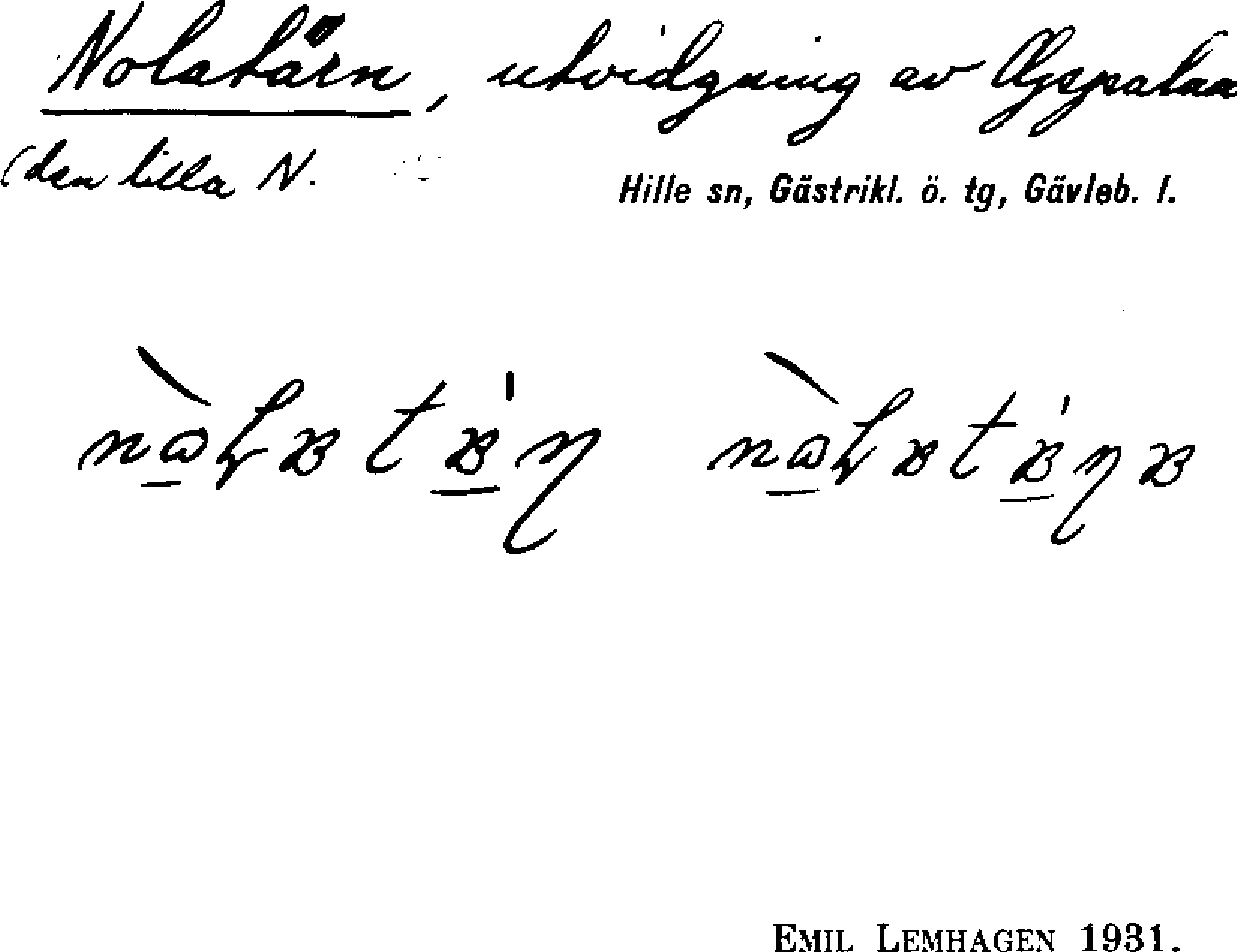 Nolatärn, utvidgning av Oppalaa
(den lilla N.
Hille sn, Gästrikl. ö. tg, Gävleb. l.
EMIL LEMHAGEN 1931.